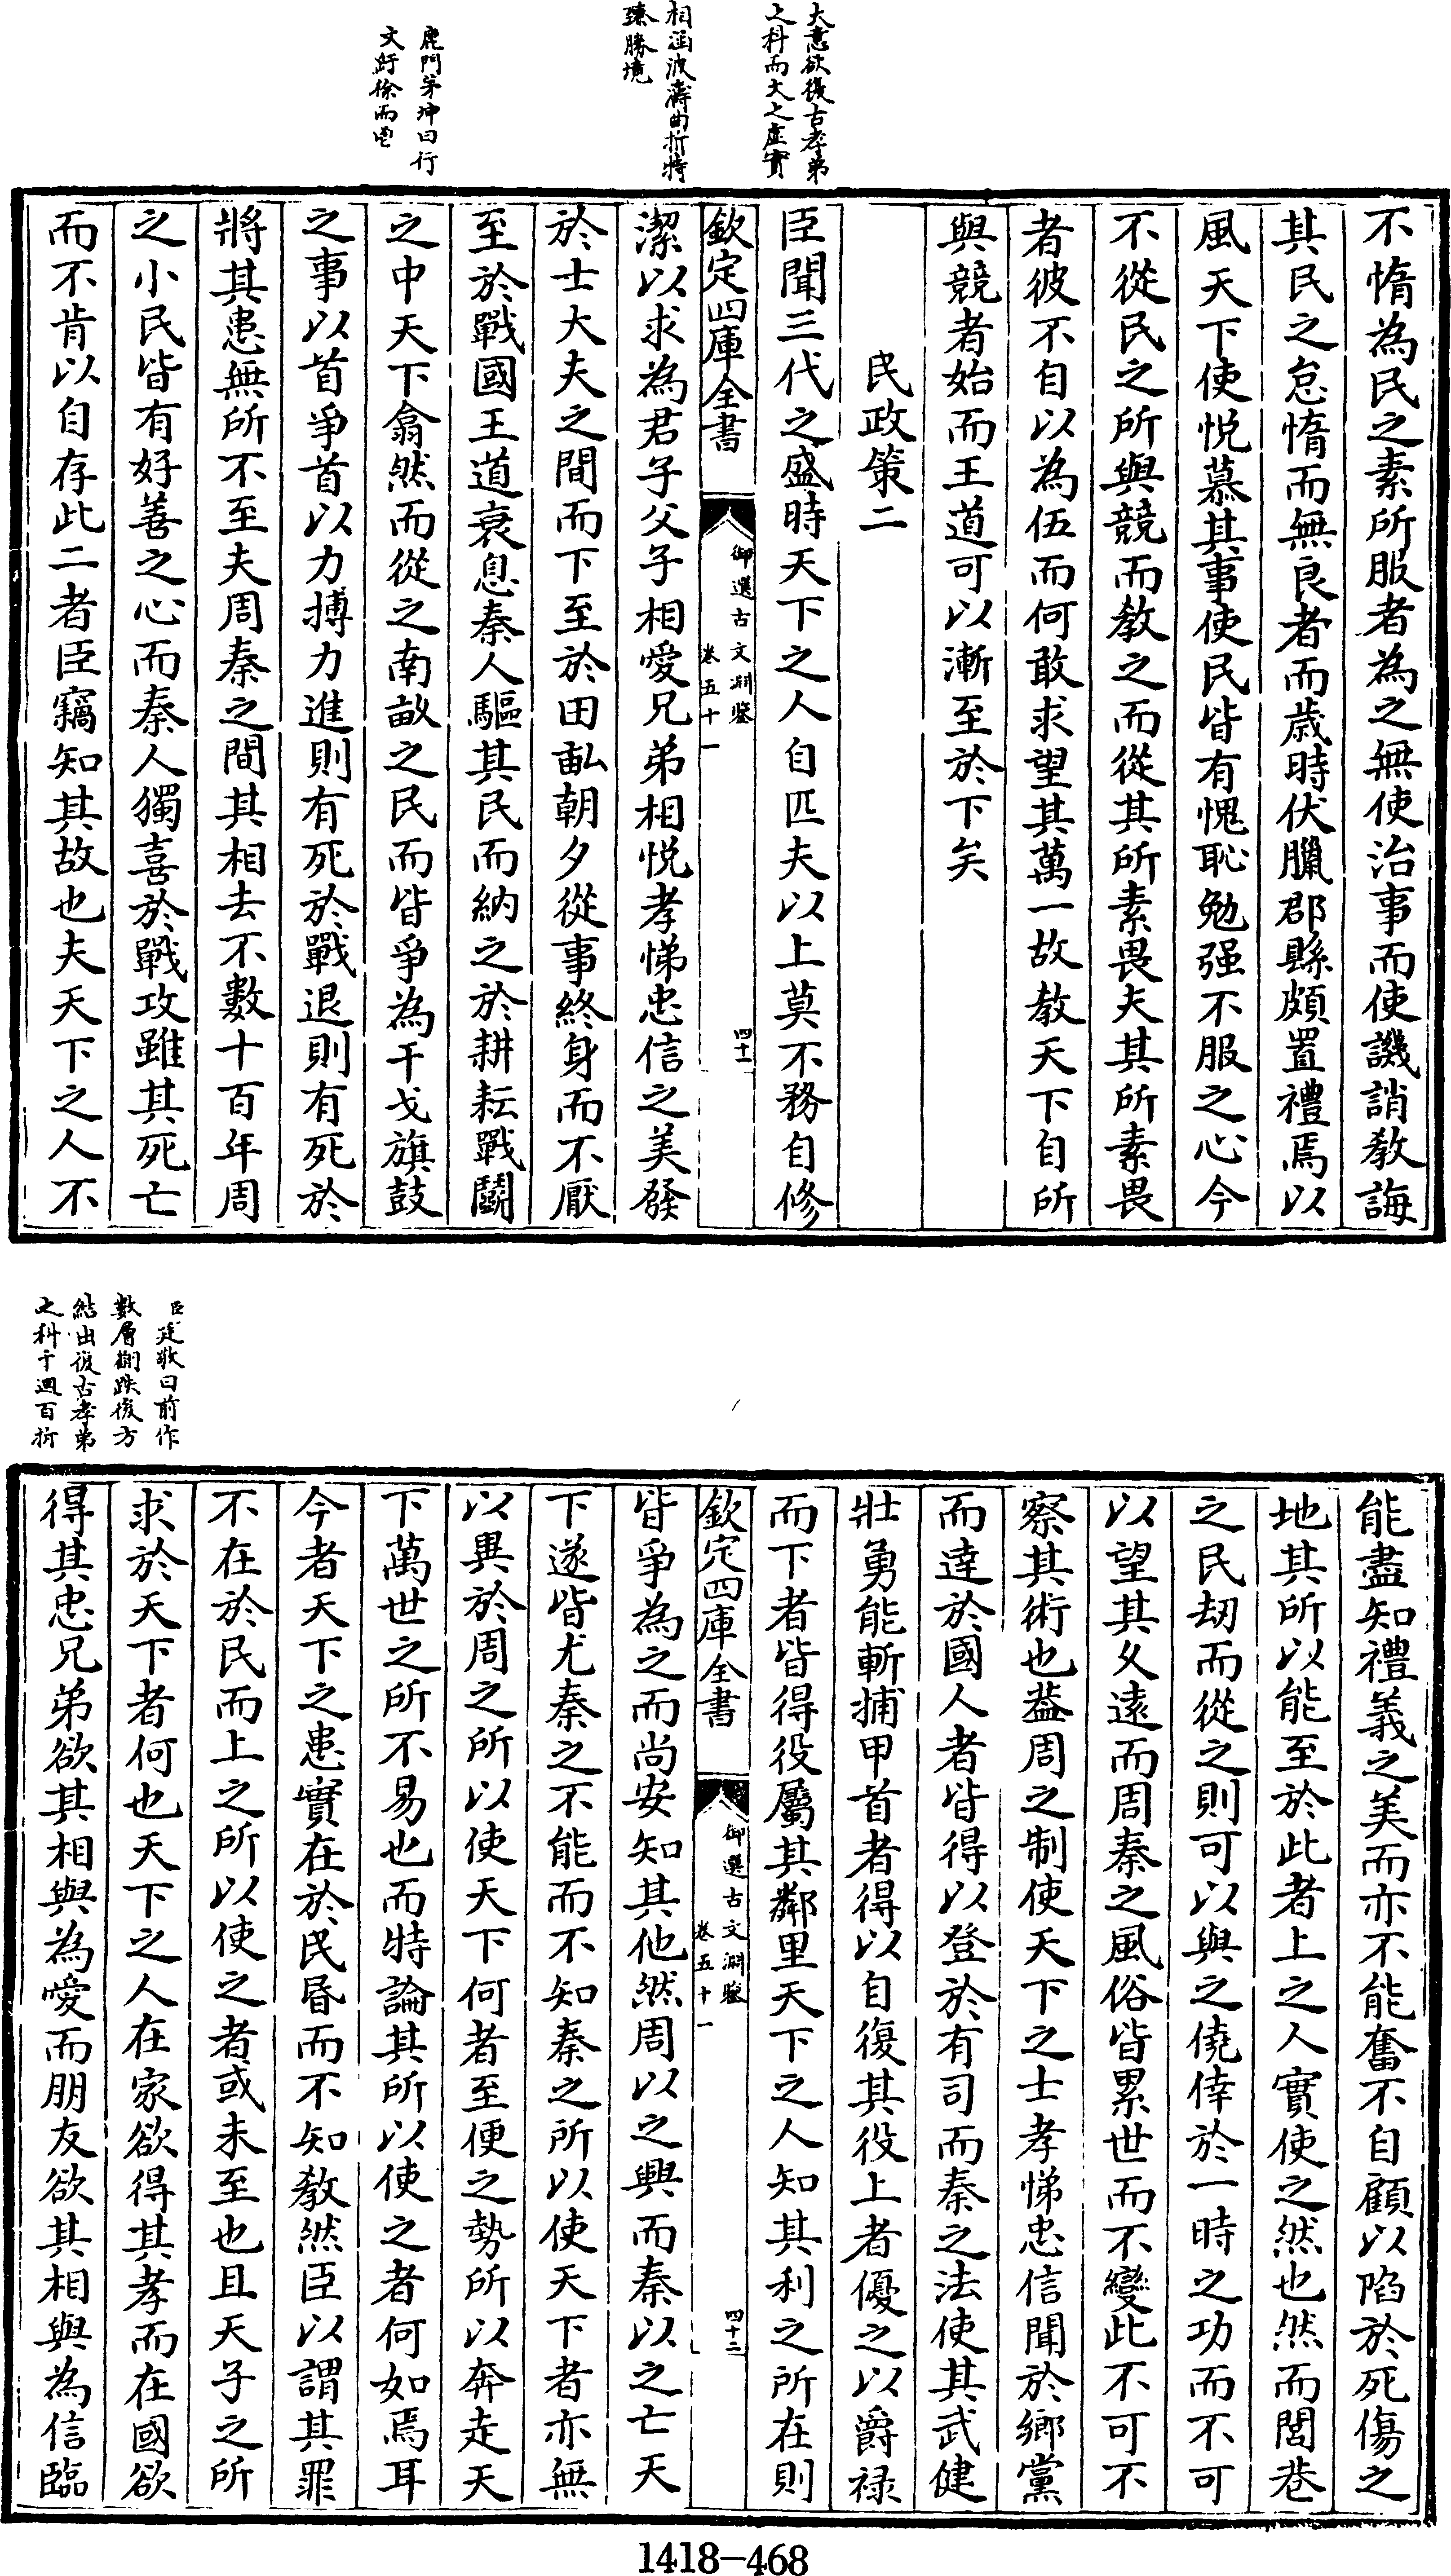 大意欲復古孝弟
之科而文之虛實
相函波濤曲折特
臻勝境
鹿門茅坤曰行
文紆徐而
不惰為民之素所服者為之無使治事而使譏誚敎誨
其民之怠惰而無良者而歳時伏臘郡縣頗置禮焉以
風天下使悦慕其事使民皆有愧恥勉强不服之心今
不從民之所與競而敎之而從其所素畏夫其所素畏
者彼不自以為伍而何敢求望其萬一故教天下自所
與競者始而王道可以漸至於下矣
民政策二
臣聞三代之盛時天下之人自匹夫以上莫不務自修
欽定四庫全書
御選古文淵鑒
卷五十一
四十一
潔以求為君子父子相愛兄弟相悦孝悌忠信之美發
於士大夫之間而下至於田畝朝夕從事終身而不厭
至於戰國王道衰息秦人驅其民而納之於耕耘戰鬭
之中天下翕然而從之南畝之民而皆爭為干戈旗鼓
之事以首爭首以力搏力進則有死於戰退則有死於
將其患無所不至夫周秦之間其相去不數十百年周
之小民皆有好善之心而秦人獨喜於戰攻雖其死亡
而不肯以自存此二者臣竊知其故也夫天下之人不
臣廷敬曰前作
數層翻跌後方
結出復古孝弟
之科千迴百折
能盡知禮義之美而亦不能奮不自顧以陷於死傷之
地其所以能至於此者上之人實使之然也然而閭巷
之民刼而從之則可以與之僥倖於一時之功而不可
以望其久逺而周秦之風俗皆累世而不變此不可不
察其術也葢周之制使天下之士孝悌忠信聞於鄉黨
而達於國人者皆得以登於有司而秦之法使其武健
壯勇能斬捕甲首者得以自復其役上者優之以爵禄
而下者皆得役屬其鄰里天下之人知其利之所在則
欽定四庫全書
御選古文淵鑒
卷五十一
四十二
皆爭為之而尚安知其他然周以之興而秦以之亡天
下遂皆尤秦之不能而不知秦之所以使天下者亦無
以異於周之所以使天下何者至便之勢所以奔走天
下萬世之所不易也而特論其所以使之者何如焉耳
今者天下之患實在於民昏而不知敎然臣以謂其罪
不在於民而上之所以使之者或未至也且天子之所
求於天下者何也天下之人在家欲得其孝而在國欲
得其忠兄弟欲其相與為愛而朋友欲其相與為信臨
1418-468